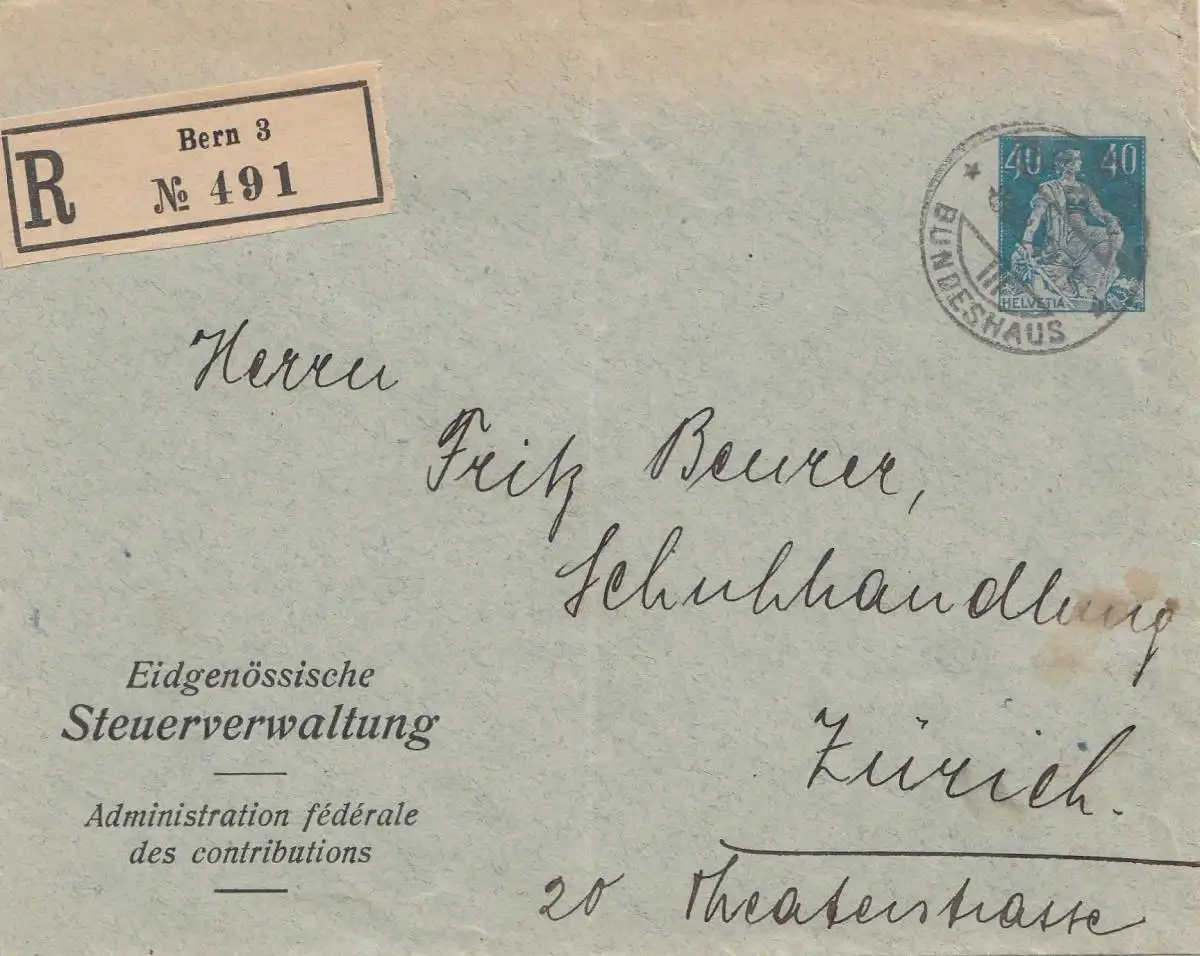 Bern 3
R № 491
40 40
HELVETIA
BUNDESHAUS
Herrn
Fritz Beurer,
Schuhhandlung
Zürich.
20 Theaterstrasse
Eidgenössische
Steuerverwaltung
Administration fédérale
des contributions